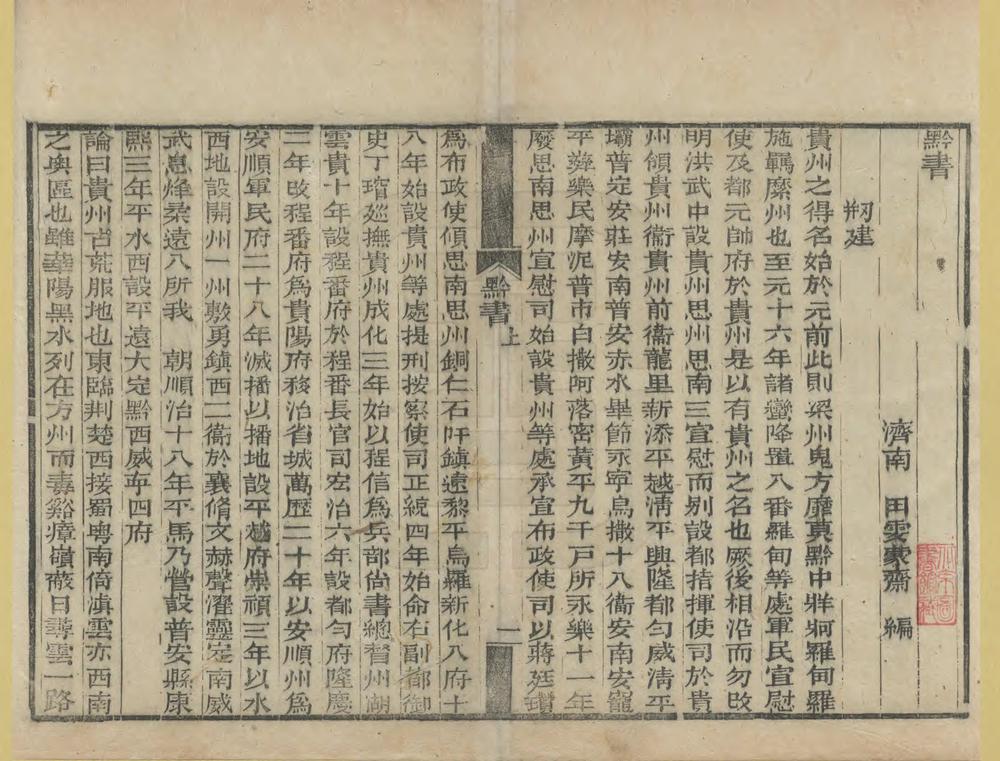 黔書
濟南 田雯蒙齋 編
刱建
貴州之得名始於元前此則梁州鬼方靡莫黔中牂牁羅甸羅
施羈縻州也至元十六年諸蠻降置八番羅甸等處軍民宣慰
使及都元帥府於貴州是以有貴州之名也厥後相沿而勿改
明洪武中設貴州思州思南三宣慰而别設都指揮使司於貴
州領貴州衞貴州前衞龍里新添平越淸平興隆都勻威淸平
壩普定安莊安南普安赤水畢節永寧烏撒十八衞安南安籠
平彝樂民摩泥普市白撒阿落密黃平九千戸所永樂十一年
廢思南思州宣慰司始設貴州等處承宣布政使司以蔣廷瓚
黔書 上 一
爲布政使領思南思州銅仁石阡鎭遠黎平烏羅新化八府十
八年始設貴州等處提刑按察使司正統四年始命右副都御
史丁璿廵撫貴州成化三年始以程信爲兵部尚書總督川湖
雲貴十年設程番府於程番長官司宏治六年設都勻府隆慶
二年改程番府爲貴陽府移治省城萬歷二十年以安順州爲
安順軍民府二十八年滅播以播地設平越府崇禎三年以水
西地設開州一州敷勇鎭西二衞於襄脩文赫聲濯靈定南威
武息烽柔遠八所我 朝順治十八年平馬乃營設普安縣康
熙三年平水西設平遠大定黔西威寧四府
論曰貴州古荒服地也東臨荆楚西接蜀粤南倚滇雲亦西南
之奥區也雖華陽黑水列在方州而毒谿瘴嶺蔽日尋雲一路